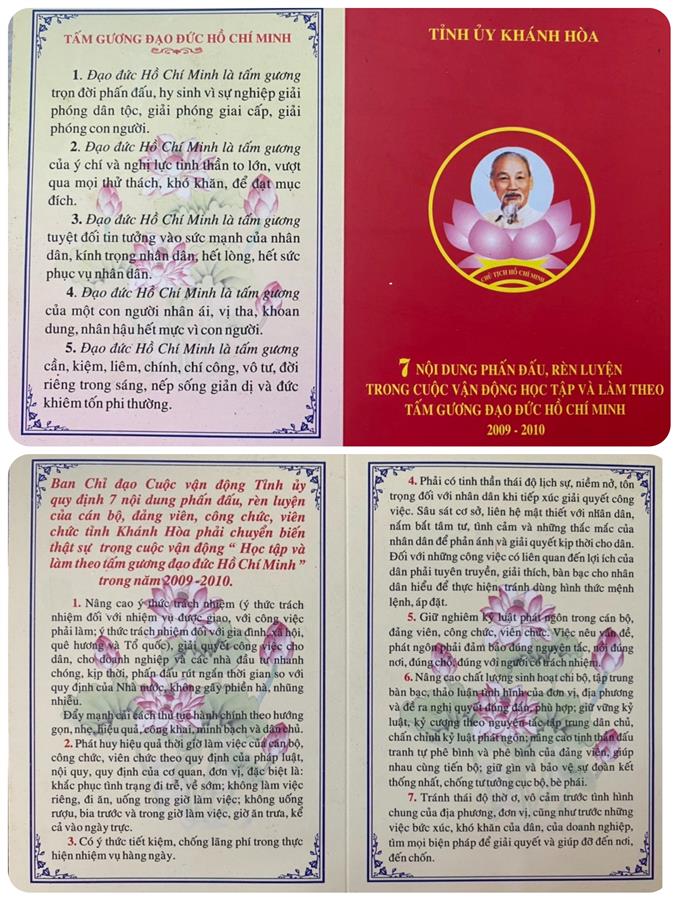 TẤM GƯƠNG ĐẠO ĐỨC HỒ CHÍ MINH
1. Đạo đức Hồ Chí Minh là tấm gương
trọn đời phấn đấu, hy sinh vì sự nghiệp giải
phóng dân tộc, giải phóng giai cấp, giải
phóng con người.
2. Đạo đức Hồ Chí Minh là tấm gương
của ý chí và nghị lực tinh thần to lớn, vượt
qua mọi thử thách, khó khăn, để đạt mục
đích.
3. Đạo đức Hồ Chí Minh là tấm gương
tuyệt đối tin tưởng vào sức mạnh của nhân
dân, kính trọng nhân dân, hết lòng, hết sức
phục vụ nhân dân.
4. Đạo đức Hồ Chí Minh là tấm gương
của một con người nhân ái, vị tha, khoan
dung, nhân hậu hết mực vì con người.
5. Đạo đức Hồ Chí Minh là tấm gương
cần, kiệm, liêm, chính, chí công, vô tư, đời
riêng trong sáng, nếp sống giản dị và đức
khiêm tốn phi thường.
TỈNH ỦY KHÁNH HÒA
CHỦ TỊCH HỒ CHÍ MINH
7 NỘI DUNG PHẤN ĐẤU, RÈN LUYỆN
TRONG CUỘC VẬN ĐỘNG HỌC TẬP VÀ LÀM THEO
TẤM GƯƠNG ĐẠO ĐỨC HỒ CHÍ MINH
2009 - 2010
Ban Chỉ đạo Cuộc vận động Tỉnh ủy
quy định 7 nội dung phấn đấu, rèn luyện
của cán bộ, đảng viên, công chức, viên
chức tỉnh Khánh Hòa phải chuyển biến
thật sự trong cuộc vận động “ Học tập và
làm theo tấm gương đạo đức Hồ Chí Minh ”
trong năm 2009 -2010.
1. Nâng cao ý thức trách nhiệm (ý thức trách
nhiệm đối với nhiệm vụ được giao, với công việc
phải làm; ý thức trách nhiệm đối với gia đình, xã hội,
quê hương và Tổ quốc), giải quyết công việc cho
dân, cho doanh nghiệp và các nhà đầu tư nhanh
chóng, kịp thời, phấn đấu rút ngắn thời gian so với
quy định của Nhà nước, không gây phiền hà, nhũng
nhiễu.
Đẩy mạnh cải cách thủ tục hành chính theo hướng
gọn, nhẹ, hiệu quả, công khai, minh bạch và dân chủ.
2. Phát huy hiệu quả thời giờ làm việc của cán bộ,
công chức, viên chức theo quy định của pháp luật,
nội quy, quy định của cơ quan, đơn vị, đặc biệt là:
khắc phục tình trạng đi trễ, về sớm; không làm việc
riêng, đi ăn, uống trong giờ làm việc; không uống
rượu, bia trước và trong giờ làm việc, giờ ăn trưa, kể
cả vào ngày trực.
3. Có ý thức tiết kiệm, chống lãng phí trong thực
hiện nhiệm vụ hàng ngày.
4. Phải có tinh thần thái độ lịch sự, niềm nở, tôn
trọng đối với nhân dân khi tiếp xúc giải quyết công
việc. Sâu sát cơ sở, liên hệ mật thiết với nhân dân,
nắm bắt tâm tư, tình cảm và những thắc mắc của
nhân dân để phản ánh và giải quyết kịp thời cho dân.
Đối với những công việc có liên quan đến lợi ích của
dân phải tuyên truyền, giải thích, bàn bạc cho nhân
dân hiểu để thực hiện, tránh dùng hình thức mệnh
lệnh, áp đặt.
5. Giữ nghiêm kỷ luật phát ngôn trong cán bộ,
đảng viên, công chức, viên chức. Việc nêu vấn đề,
phát ngôn phải đảm bảo đúng nguyên tắc, nói đúng
nơi, đúng chỗ, đúng với người có trách nhiệm.
6. Nâng cao chất lượng sinh hoạt chi bộ, tập trung
bàn bạc, thảo luận tình hình của đơn vị, địa phương
và đề ra nghị quyết đúng đắn, phù hợp; giữ vững kỷ
luật, kỷ cương theo nguyên tắc tập trung dân chủ,
chấn chỉnh kỷ luật phát ngôn; nâng cao tinh thần đấu
tranh tự phê bình và phê bình của đảng viên, giúp
nhau cùng tiến bộ; giữ gìn và bảo vệ sự đoàn kết
thống nhất, chống tư tưởng cục bộ, bè phái.
7. Tránh thái độ thờ ơ, vô cảm trước tình hình
chung của địa phương, đơn vị, cũng như trước những
việc bức xúc, khó khăn của dân, của doanh nghiệp,
tìm mọi biện pháp để giải quyết và giúp đỡ đến nơi,
đến chốn.